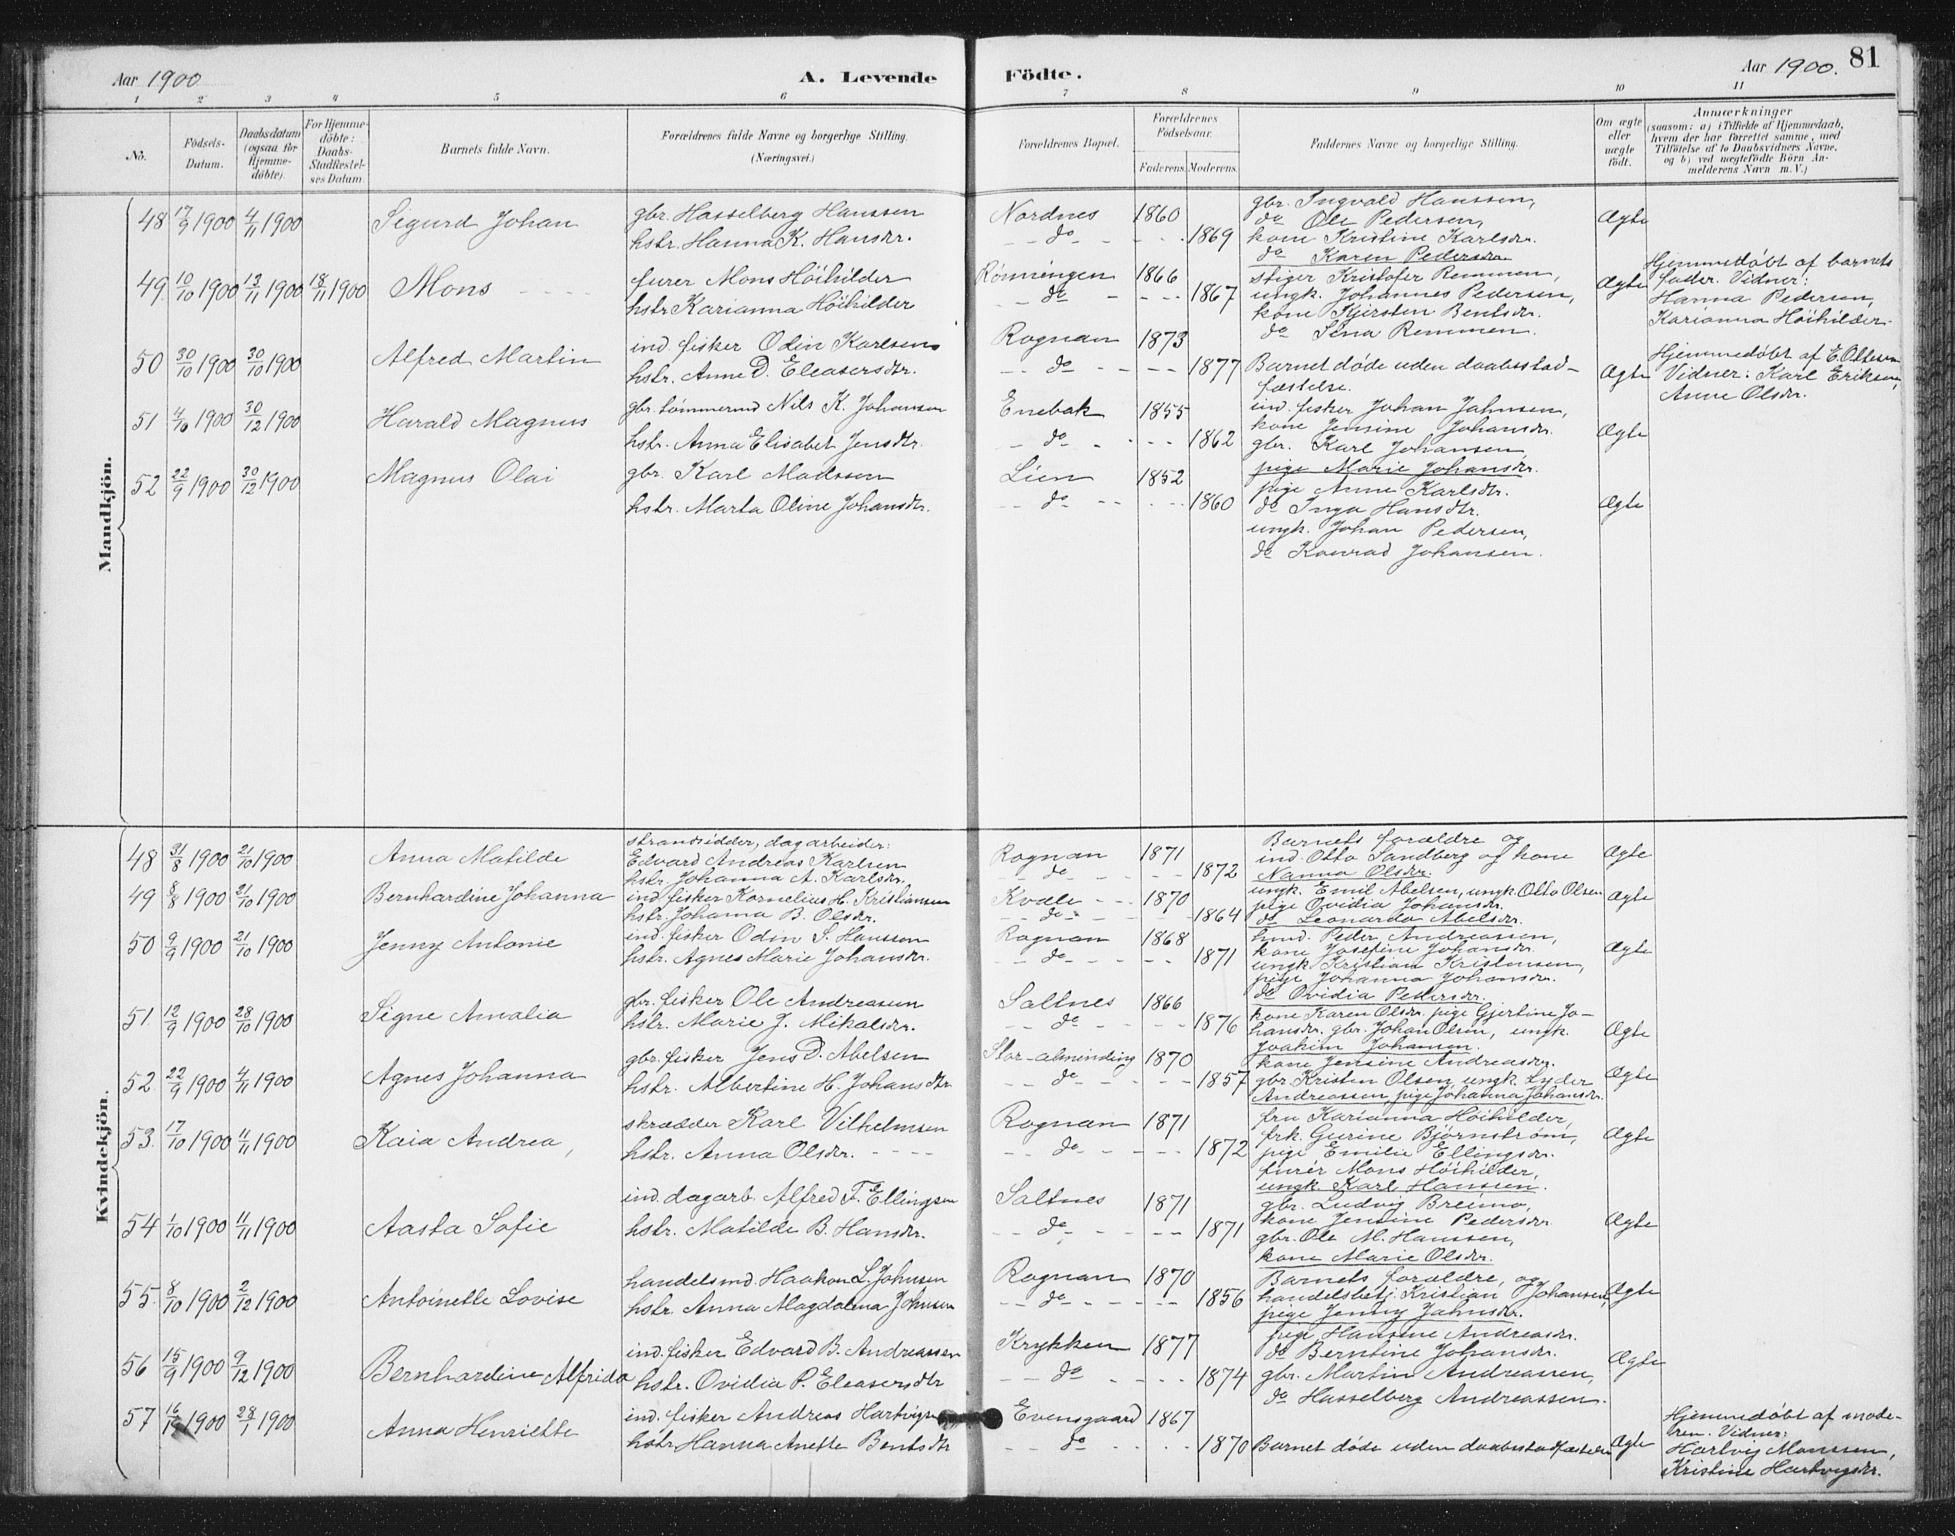 Aar 1900 A. Levende Födte. Aar 1900. 81
1 2 3 4 5 6 7 8 9 10 11
No.
Födsels-Datum.
Daabsdatum (ogsaa for Hjemmedöbte).
For Hjemmedöbte: Daabs-Stadfæstelses Datum
Barnets fulde Navn.
Forældrenes fulde Navne og borgerlige Stilling.
(Næringsvei.)
Forældrenes Bopæl.
Forældrenes Födselsaar.
Faderens. Moderens.
Faddernes Navne og borgerlige Stilling.
Om ægte eller uægte födt.
Anmærkninger
(saasom: a) i Tilfælde af Hjemmedaab, hvem der har forrettet samme, med Tilföielse af to Daabsvidners Navne, og b) ved uægtefödte Börn Anmelderens Navn m. V.)
Mandkjön.
48 17/9 1900 4/11 1900 Sigurd Johan
gbr. Hasselberg Hanssen
hstr. Hanna K. Hansdr.
Nordnes 1860
do 1869
gbr. Ingvald Hanssen,
do Ole Pedersen,
kone Kristine Karlsdr.
do Karen Pedersdr.
Ægte
49. 10/10 1900 13/11 1900 18/11 1900 Mons
furer Mons Höihilder
hstr Karianna Höihilder
1866
do 1867
stiger Kristofer Remmen,
ungk. Johannes Pedersen,
kone Kjersten Bentsdr.
do Sina Remmen.
Ægte
Hjemmedøbt af barnets
fader. Vidner:
Hanna Pedersen,
Karianna Höihilder
50 30/10 1900 30/10 1900 Alfred Martin
ind. fisker Odin Karlsen
hstr. Anne D. Eleasersdtr.
Rognan 1873
do 1877
Barnet døde uden daabsstad-
fæstelse.
Ægte
Hjemmedøbt af E. Ottesen
Vidner: Karl Eriksen,
Anne Olsdr.
51 4/10 1900 30/12 1900 Harald Magnus
gbr. tømmermd Nils K. Johansen
hstr. Anna Elisabet Jensdtr.
Enebak 1855
do 1862
ind. fisker Johan Jahnsen,
kone Jensine Johansdr.
gbr. Karl Johansen,
pige Marie Johansdr.
Ægte
52 22/9 1900 30/12 1900 Magnus Olai
gbr. Karl Madssen
hstr. Marta Oline Johansdtr.
Lien 1852
do 1860
pige Anne Karlsdtr.
do Inga Hansdtr.
ungk. Johan Pedersen,
do Konrad Johansen.
Ægte
Kvindekjön.
48 31/8 1900 21/10 1900 Anna Matilde
strandsidder, dagarbeider:
Edvard Andreas Karlsen
hstr. Johanna A. Karlsdr.
Rognan 1871
do 1872
Barnets forældre og
ind. Otto Sandberg og kone
Nanna Olsdr.
Ægte
49 8/8 1900 21/10 1900 Bernhardine Johanna
ind. fisker Kornelius H. Kristiansen
hstr. Johanna B. Olsdr.
Kvæle 1870
do 1864
ungk. Emil Abelsen, ungk. Otto Olsen
pige Ovidia Johansdr.
do Leonarda Abelsdr.
Ægte
50 9/9 1900 21/10 1900 Jenny Antonie
ind. fisker Odin S. Hanssen
hstr. Agnes Marie Johansdr.
Rognan 1868
do 1871
husd. Peder Andreassen,
kone Josefine Johansdr.
ungk Kristian Kristensen,
pige Johanna Johansdr.
do Ovidia Pedersdr.
Ægte
51. 12/9 1900 28/10 1900 Signe Amalia
gbr. fisker Ole Andreasen
hstr. Marie J. Mikalsdr.
Saltnes 1866
do 1876
kone Karen Olsdr. pige Gjertine Jo-
hansdr. gbr. Johan Olsen, ungk.
Joakim Johansen.
Ægte
52. 22/9 1900 4/11 1900 Agnes Johanna
gbr. fisker Jens D. Abelsen
hstr. Albertine H. Johansdtr
Stor-alminding 1870
do 1857
kone Jensine Andreasdr.
gbr. Kristen Olsen ungk. Lyder
Andreassen, pige Johanna Johansdr.
Ægte
53. 17/10 1900 11/11 1900 Kaia Andrea,
skrædder Karl Vilhelmsen
hstr. Anna Olsdr.
Rognan 1871
do 1872
fru Karianna Höihilder,
frk. Gurine Bjørnstrøm,
pige Emilie Ellingsdr.
furér Mons Höihilder,
ungk. Karl Hanssen.
Ægte
54 1/10 1900 11/11 1900 Aasta Sofie
ind. dagarb. Alfred F. Ellingsen
hstr. Matilde B. Hansdr.
Saltnes 1871
do 1871
gbr. Ludvig Breimo,
kone Jensine Pedersdr.
gbr. Ole M. Hanssen,
kone Marie Olsdr.
Ægte
55. 8/10 1900 2/12 1900 Antoinette Lovise
handelsmd. Haakon L. Johnsen
hstr. Anna Magdalena Johnsen
Rognan 1870
do 1856
Barnets forældre, og
handelsbetj. Kristian Johansen,
pige Jenny Jahnsdr.
Ægte
56 15/9 1900 9/12 1900 Bernhardine Alfrida
ind. fisker Edvard B. Andreassen
hstr. Ovidia P. Eleasersdtr
Krykken 1877
do 1874
pige Hansine Andreasdr.
do Berntine Johansdr.
gbr. Martin Andreassen,
do Hasselberg Andreassen.
Ægte
57 16/ 1900 28/1 1900 Anna Henriette
ind. fisker Andreas Hartvigsen
hstr Hanna Anette Bentsdtr
Evensgaard 1867
do 1870
Barnet døde uden daabsstadfæstelse
Ægte
Hjemmedøbt af mode-
ren. Vidner:
Hartvig Monssen,
Kristine Hartvigsdr.